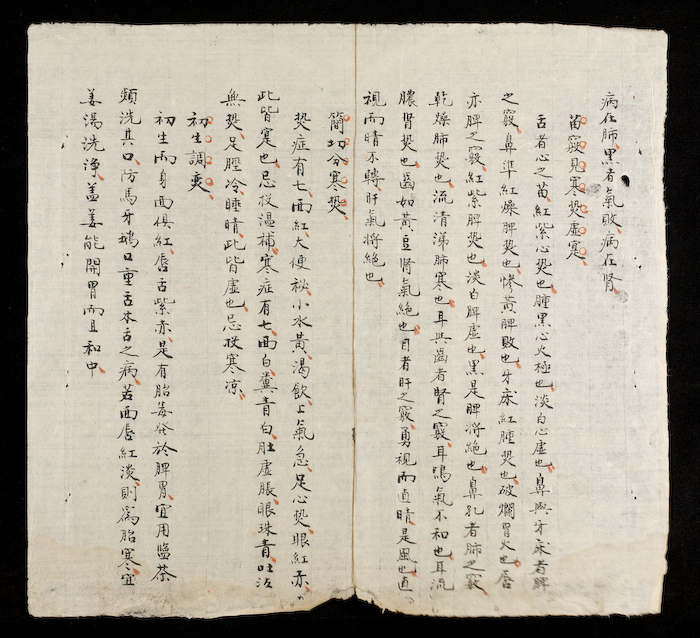 病在肺、黑者氣敗、病在腎、
苗竅見寒熱虛寔、
舌者心之苗、紅紫心熱也、腫黑心火極也、淡白心虛也、鼻與牙床者脾
之竅、鼻準紅燥脾熱也、慘黃脾敗也、牙床紅腫熱也、破爛胃火也、唇
亦脾之竅、紅紫脾熱也、淡白脾虛也、黑是脾將絕也、鼻孔者肺之竅
乾燥肺熱也、流清涕肺寒也、耳與齒者腎之竅、耳鳴氣不和也、耳流
膿腎熱也、齒如黃豆腎氣絕也、目者肝之竅、勇視而直睛是風也、直
視而睛不轉、肝氣將絕也、
簡切分寒熱
熱症有七、面紅、大便秘、小水黃、渴飲、上氣急、足心熱、眼紅赤、
此皆寔也、忌投溫補、寒症有七、面白、糞青白、肚虛脹、眼珠青、吐泻
無熱、足脛冷、睡睛、此皆虛也、忌投寒凉、
初生調爕
初生兩身面俱紅、唇舌紫赤、是有胎毒發於脾胃、宜用盬茶
頻洗其口、防馬牙鵝口重舌木舌之病、若面唇紅淡、則為胎寒、宜
姜湯洗淨、盖姜能開胃而且和中